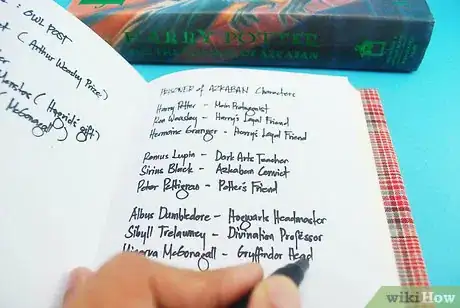 : OWL POST
( Arthur Weasley Prize)
( Hagrid's gift)
McGonagall
HARRY POTTER
AND THE PRISONER OF AZKABAN
PRISONER of AZKABAN Characters
Harry Potter - Main Protagonist
Ron Weasley - Harry's Loyal Friend
Hermoine Granger - Harry's Loyal Friend
Remus Lupin - Dark Arts Teacher
Sirius Black - Azkaban Convict
Peter Pettigrew - Potter's Friend
Albus Dumbledore - Hogwarts Headmaster
Sibyll Trelawney - Divination Professor
Minerva McGonagall - Gryffindor Head
wikiHow